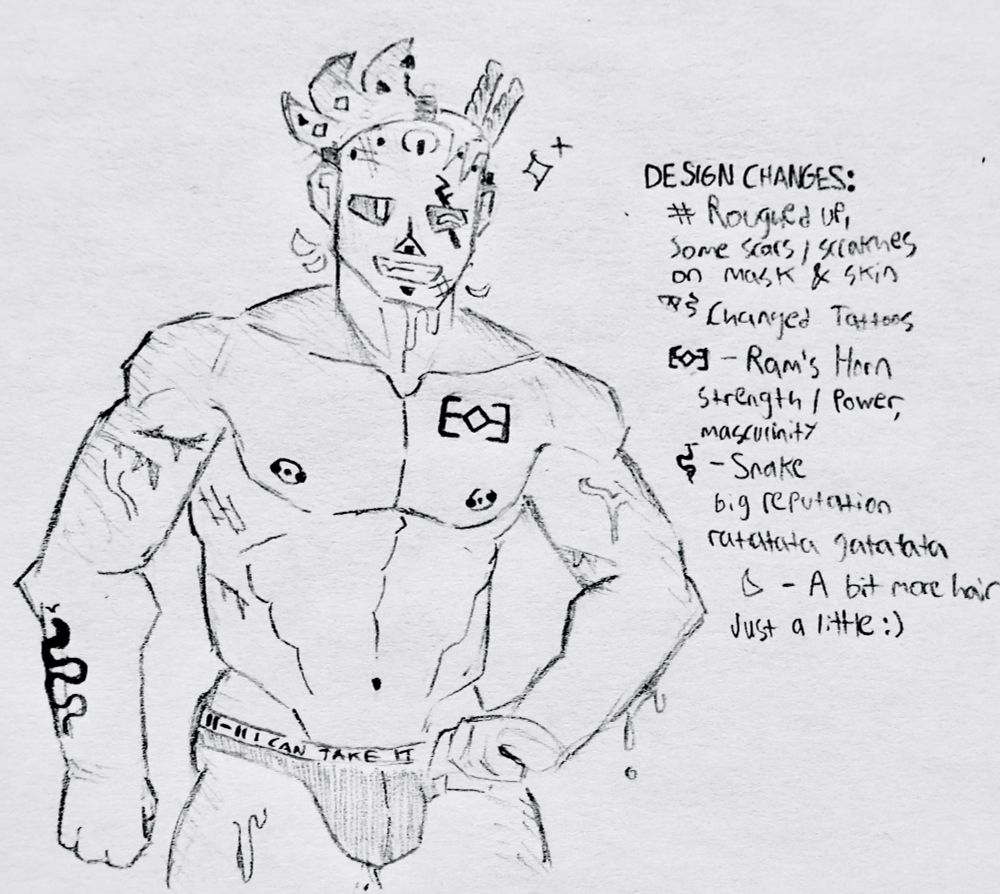 DESIGN CHANGES:
# Rougued up,
Some scars / scratches
on mask & skin
Changed Tattoos
- Ram's Horn
strength / Power,
masculinity
- Snake
big reputation
ratatata gatatata
- A bit more hair
Just a little :)
H-H I CAN TAKE IT